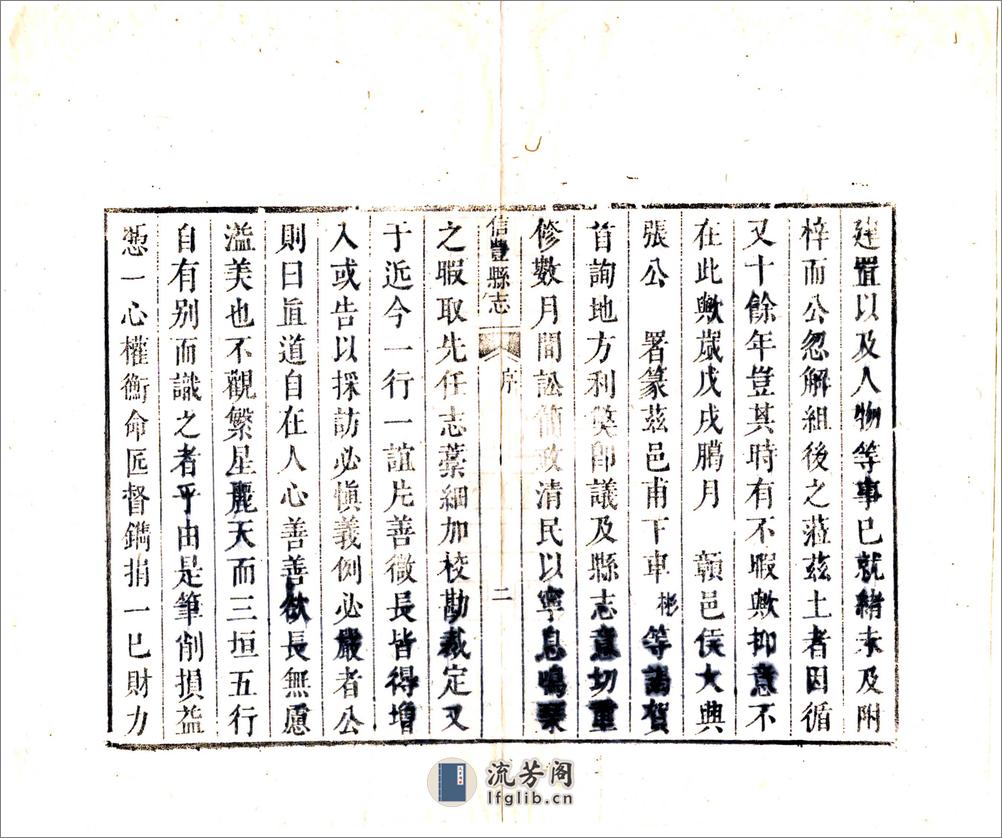 建置以及人物等事已就緒未及附
梓而公忽解組後之蒞茲土者因循
又十餘年豈其時有不暇歟抑意不
在此歟歲戊戌鵬月 贛邑侯大典
張公 署篆茲邑甫下車彬等謁賀
首詢地方利弊卽議及縣志意切重
修數月間訟簡政清民以寧息鳴琴
信豐縣志 序 二
之暇取先任志藁細加校勘裁定又
于近今一行一誼片善微長皆得增
入或告以採訪必愼義例必嚴者公
則曰直道自在人心善善欲長無慮
溢美也不觀繁星麗天而三垣五行
自有别而識之者乎由是筆削損益
憑一心權衡命匠督鐫捐一已財力
流芳阁
lfglib.cn